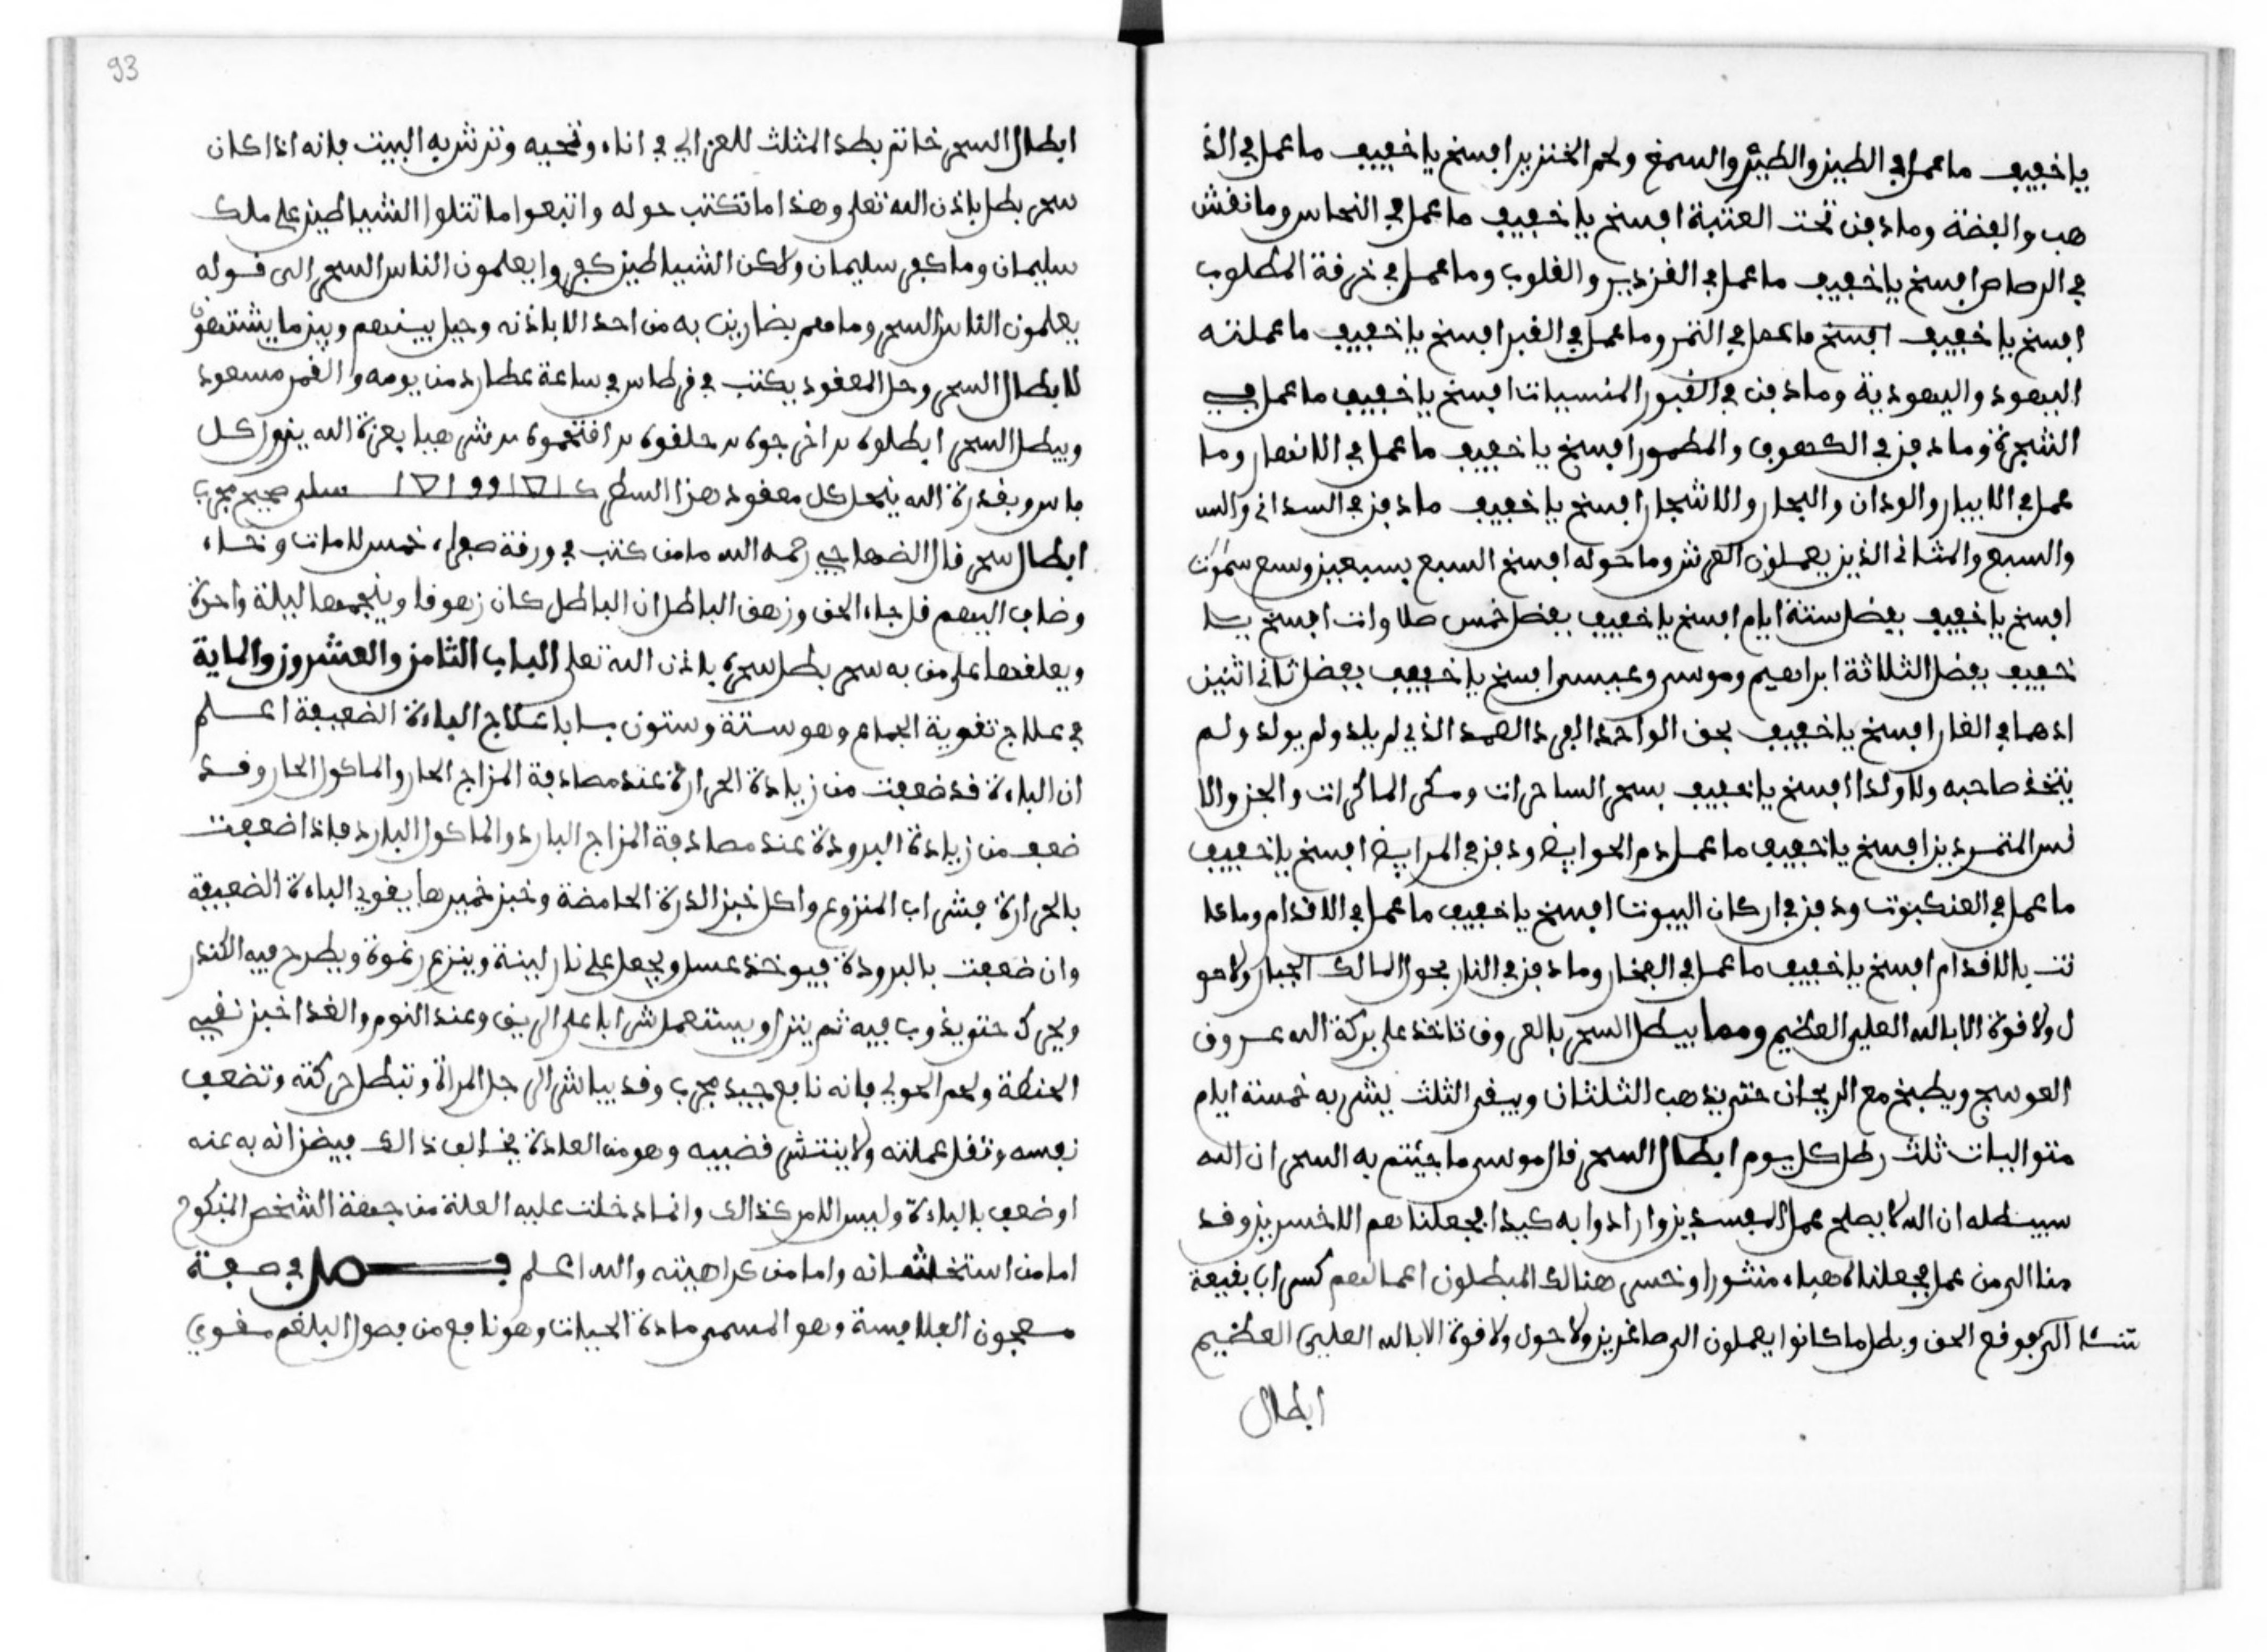 يا خفيف ما عمل في الطين والطير والسمخ ولحم الخنزير افسخ يا خفيف ما عمل في الذ
هب والفضة وما دفن تحت العتبة افسخ يا خفيف ما عمل في النحاس وما نفش
في الرصاص افسخ يا خفيف ما عمل في القزدير والقلوب وما عمل في خرقة المطلوب
افسخ يا خفيف افسخ ما عمل في التمر وما عمل في القبر افسخ يا خفيف ما عملته
اليهود واليهودية وما دفن في القبور المنسيات افسخ يا خفيف ما عمل في
الشجرة وما دفن في الكهوف والمطمور افسخ يا خفيف ما عمل في الانهار وما
عمل في الابيار والودان والبحار والاشجار افسخ يا خفيف ما دفن في السدانى والس
والسبع والمثانى الذين يحملون العرش وما حوله افسخ السبع بسبعين وسبع سموات
افسخ يا خفيف بفضل ستة ايام افسخ يا خفيف بفضل خمس صلاوات افسخ يا
خفيف بفضل الثلاثة ابراهيم وموسى وعيسى افسخ يا خفيف بفضل ثانى اثنين
اذ هما في الغار افسخ يا خفيف بحق الواحد الفرد الصمد الذي لم يلد ولم يولد ولم
يتخذ صاحبه ولا ولدا افسخ يا خفيف بسحر الساحرات ومكر الماكرات والجن والا
نس المتمردين افسخ يا خفيف ما عمل دم الحوايض ودفن في المرايض افسخ يا خفيف
ما عمل في العنكبوت ودفن في اركان البيوت افسخ يا خفيف ما عمل في الاقدام وما عا
نت بالاقدام افسخ يا خفيف ما عمل في الفخار وما دفن في النار بحول المالك الجبار ولا حو
ل ولا قوة الا بالله العلي العظيم ومما يبطل السحر بالعروق تاخذ على بركة الله عروق
العوسج ويطبخ مع الريحان حتى يذهب الثلثان ويبقى الثلث يشربه خمسة ايام
متواليات ثلث رطل كل يوم ابطال السحر قال موسى ما جيئتم به السحر ان الله
سيبطله ان الله لا يصلح عمل المفسدين وارادوا به كيدا فجعلناهم الاخسرين وقد
منا الى من عمل فجعلناه هباء منثورا وخسر هنالك المبطلون اعمالهم كسراب بقيعة
تنسا الى فوقع الحق وبطل ما كانوا يعملون الى صاغرين ولا حول ولا قوة الا بالله العلي العظيم
ابطال
93
ابطال السحر خاتم بطد المثلث للغزالي في اناء وتمحيه وترش به البيت فانه اذا كان
سحر بطل باذن الله تعلى وهذا ما تكتب حوله واتبعوا ما تتلوا الشياطين على ملك
سليمان وما كفر سليمان ولاكن الشياطين كفروا يعلمون الناس السحر الى قوله
يعلمون الناس السحر وما هم بضارين به من احد الا باذنه وحيل بينهم وبين ما يشتهون
لابطال السحر وحل المعقود يكتب في قرطاس في ساعة عطارد من يومه والقمر مسعود
ويبطل السحر ابطلوه اخرجوه حلقوه افتحموه بعزة الله ينور كل
وبقدرة الله ينحل كل معقود هذا السطر سلم صحيح مجرب
ابطال سحر قال الصنهاجي رحمه الله ما من كتب في ورقة صفراء خمس لامات وخاء
وضاف اليهم قل جاء الحق وزهق الباطل ان الباطل كان زهوقا وينجمها ليلة واحدة
ويعلقها على من به سحر بطل سحره باذن الله تعلى الباب الثامن والعشرون والماية
في علاج تقوية الجماع وهو ستة وستون بابا علاج الباءة الضعيفة اعلم
ان الباءة قد ضعفت من زيادة الحرارة عند مصادفة المزاج الحار والماكول الحار وقد
ضعف من زيادة البرودة عند مصادفة المزاج البارد والماكول البارد فاذا ضعفت
بالحرارة فشراب المنزوع واكل خبز الذرة الحامضة وخبز خميرها يقوي الباءة الضعيفة
وان ضعفت بالبرودة فيوخذ عسل ويجعل على نار لينة وينزع رغوة ويطرح فيه الكندر
ويحرك حتى يذوب فيه ثم ينزل ويستعمل شرابا على الريق وعند النوم والغدا خبز نقي
الحنطة ولحم الحولي فانه نافع جيد مجرب وقد يباشر الرجل المراة وتبطل حركته وتضعف
نفسه وتقل عملته ولا ينتشر قضيبه وهو من العادة يخالف ذالك فيضن انه به عنه
او ضعف بالباءة وليس الامر كذالك وانما دخلت عليه العلة من جهة الشخص المنكوح
اما من استخشانه واما من كراهيته والله اعلم فصل في صفة
معجون الفلافسة وهو المسمى مادة الحيات وهو نافع من فصول البلغم مقوي